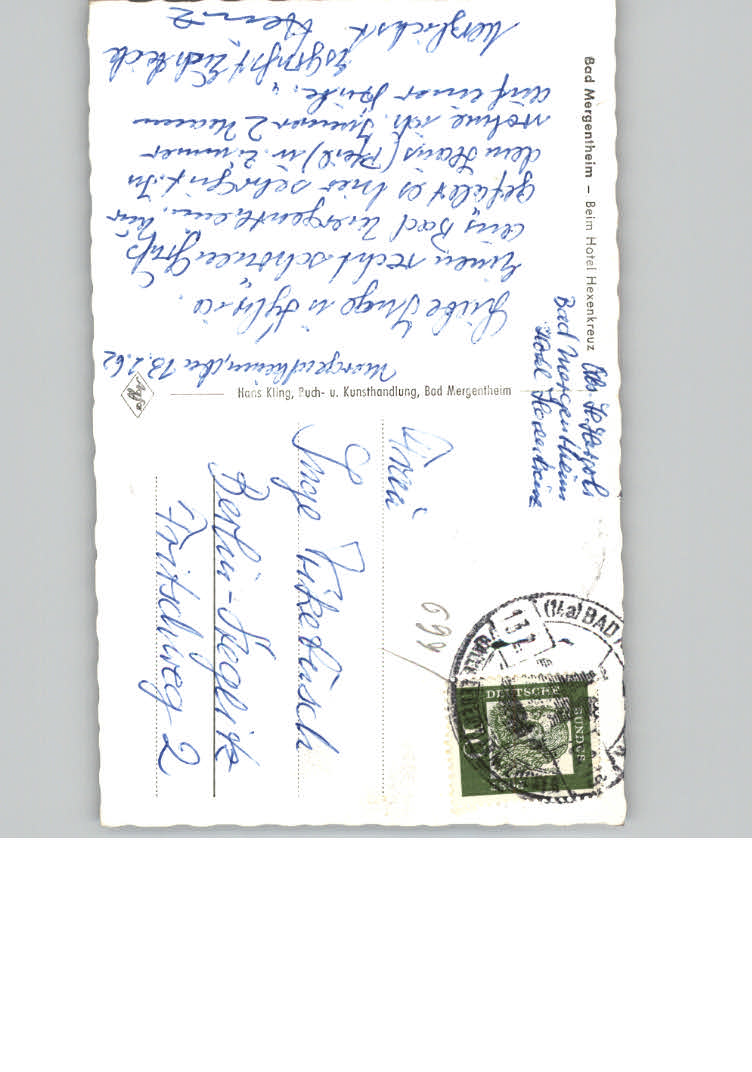 Bad Mergentheim — Beim Hotel Hexenkreuz
Mergentheim, den 13.2.62
Liebe Inge u. Sylvia.
Einen recht schönen Gruß
aus Bad Mergentheim, hier
gefällt es mir sehr gut. In
dem Haus (Pfeil) im Zimmer
wohne ich. Immer 2 Mann
auf einer Bude.
Es grüßt Euch
Herzlichst Heinz
Hans Kling, Buch- u. Kunsthandlung, Bad Mergentheim
Agfa
Abs. H.
Bad Mergentheim
Hotel Hexenkreuz
Frau
Inge
Berlin-Steglitz
Fritschweg 2
699
(14a) BAD
13.2.
DEUTSCHE
BUNDES